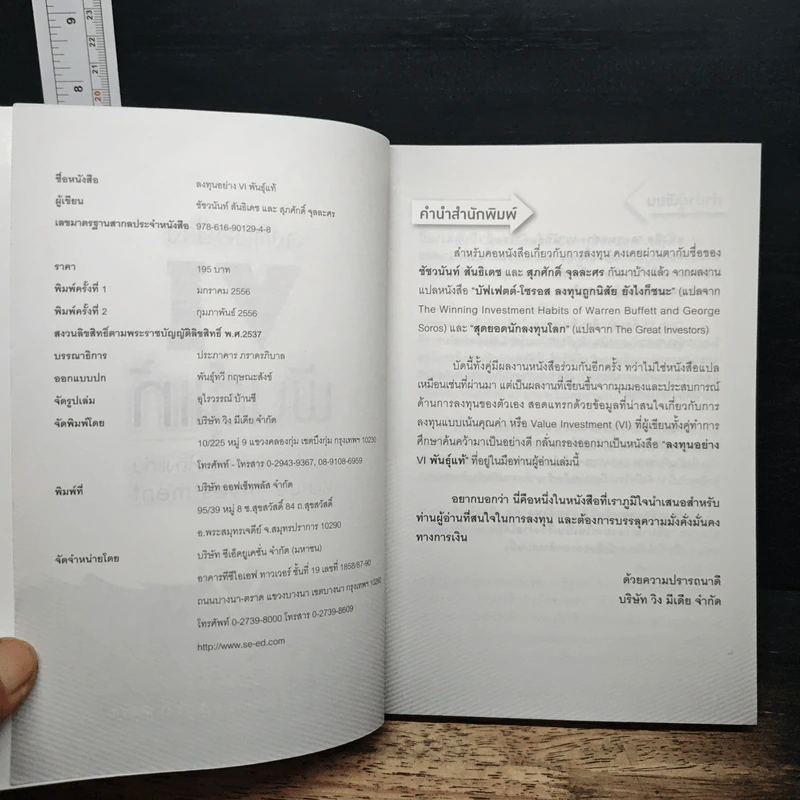 ชื่อหนังสือ ลงทุนอย่าง VI พันธุ์แท้
ผู้เขียน ชัชวนันท์ สันธิเดช และ สุภศักดิ์ จุลละศร
เลขมาตรฐานสากลประจำหนังสือ 978-616-90129-4-8
ราคา 195 บาท
พิมพ์ครั้งที่ 1 มกราคม 2556
พิมพ์ครั้งที่ 2 กุมภาพันธ์ 2556
สงวนลิขสิทธิ์ตามพระราชบัญญัติลิขสิทธิ์ พ.ศ.2537
บรรณาธิการ ประภาคาร ภราดรภิบาล
ออกแบบปก พันธุ์ทวี กฤษณะสังข์
จัดรูปเล่ม อุไรวรรณ์ บ้านชี
จัดพิมพ์โดย บริษัท วิง มีเดีย จำกัด
10/225 หมู่ 9 แขวงคลองกุ่ม เขตบึงกุ่ม กรุงเทพฯ 10230
โทรศัพท์ - โทรสาร 0-2943-9367, 08-9108-6959
พิมพ์ที่ บริษัท ออฟเซ็ทพลัส จำกัด
95/39 หมู่ 8 ซ.สุขสวัสดิ์ 84 ถ.สุขสวัสดิ์
อ.พระสมุทรเจดีย์ จ.สมุทรปราการ 10290
จัดจำหน่ายโดย บริษัท ซีเอ็ดยูเคชั่น จำกัด (มหาชน)
อาคารทีซีไอเอฟ ทาวเวอร์ ชั้นที่ 19 เลขที่ 1858/87-90
ถนนบางนา-ตราด แขวงบางนา เขตบางนา กรุงเทพฯ 10260
โทรศัพท์ 0-2739-8000 โทรสาร 0-2739-8609
http://www.se-ed.com
คำนำสำนักพิมพ์
สำหรับคอหนังสือเกี่ยวกับการลงทุน คงเคยผ่านตากับชื่อของ
ชัชวนันท์ สันธิเดช และ สุภศักดิ์ จุลละศร กันมาบ้างแล้ว จากผลงาน
แปลหนังสือ "บัฟเฟตต์-โซรอส ลงทุนถูกนิสัย ยังไงก็ชนะ" (แปลจาก
The Winning Investment Habits of Warren Buffett and George
Soros) และ "สุดยอดนักลงทุนโลก" (แปลจาก The Great Investors)
บัดนี้ทั้งคู่มีผลงานหนังสือร่วมกันอีกครั้ง ทว่าไม่ใช่หนังสือแปล
เหมือนเช่นที่ผ่านมา แต่เป็นผลงานที่เขียนขึ้นจากมุมมองและประสบการณ์
ด้านการลงทุนของตัวเอง สอดแทรกด้วยข้อมูลที่น่าสนใจเกี่ยวกับการ
ลงทุนแบบเน้นคุณค่า หรือ Value Investment (VI) ที่ผู้เขียนทั้งคู่ทำการ
ศึกษาค้นคว้ามาเป็นอย่างดี กลั่นกรองออกมาเป็นหนังสือ "ลงทุนอย่าง
VI พันธุ์แท้" ที่อยู่ในมือท่านผู้อ่านเล่มนี้
อยากบอกว่า นี่คือหนึ่งในหนังสือที่เราภูมิใจนำเสนอสำหรับ
ท่านผู้อ่านที่สนใจในการลงทุน และต้องการบรรลุความมั่งคั่งมั่นคง
ทางการเงิน
ด้วยความปรารถนาดี
บริษัท วิง มีเดีย จำกัด
9
8
23
22
21
20